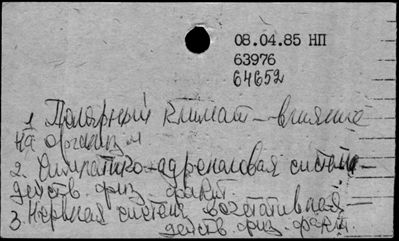 08.04.85 НП
63976
64652
1. Полярный климат - влияние
на организм
2. Симпатико-адреналовая систем-
действ. физ. факт.
3. Нервная система вегетативная
действ. физ. факт.